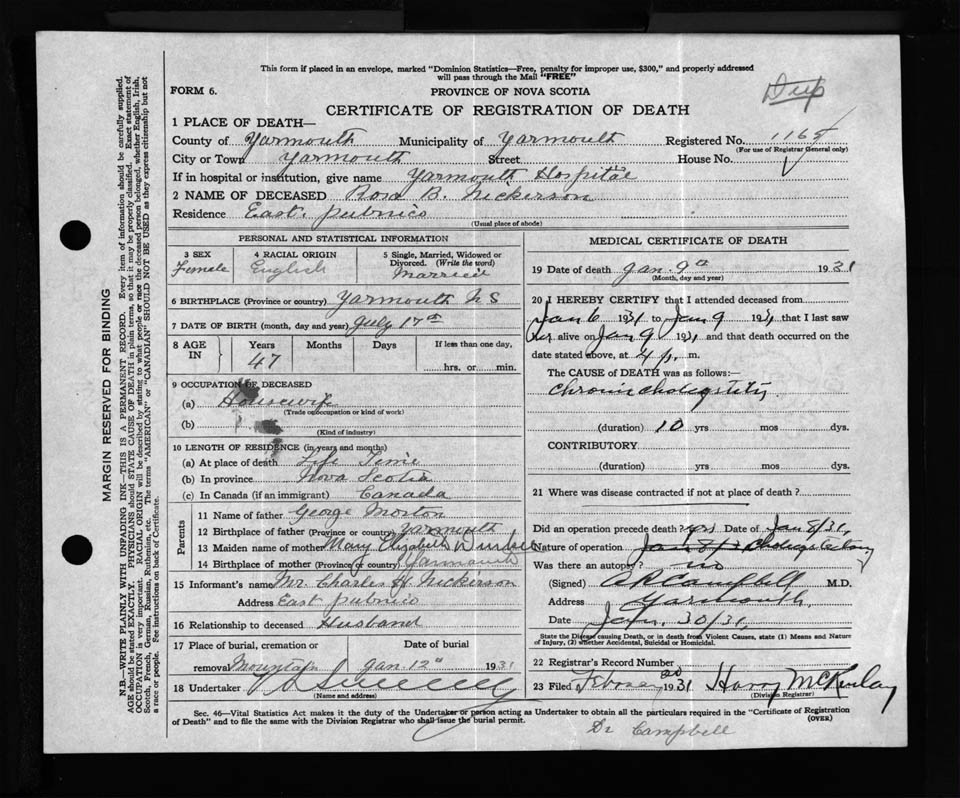 This form if placed in an envelope, marked "Dominion Statistics—Free, penalty for improper use, $300," and properly addressed
will pass through the Mail "FREE"
Dup
FORM 6.
PROVINCE OF NOVA SCOTIA
CERTIFICATE OF REGISTRATION OF DEATH
1 PLACE OF DEATH—
County of Yarmouth Municipality of Yarmouth Registered No. 1165
(For use of Registrar General only)
City or Town Yarmouth Street House No.
If in hospital or institution, give name Yarmouth Hospital
2 NAME OF DECEASED Rosa B. Nickerson
Residence East Pubnico
(Usual place of abode)
PERSONAL AND STATISTICAL INFORMATION
3 SEX Female
4 RACIAL ORIGIN English
5 Single, Married, Widowed or Divorced. (Write the word) Married
6 BIRTHPLACE (Province or country) Yarmouth N S
7 DATE OF BIRTH (month, day and year) July 17th
8 AGE IN Years Months Days If less than one day,
47 hrs. or min.
9 OCCUPATION OF DECEASED
(a) Housewife
(Trade or occupation or kind of work)
(b)
(Kind of industry)
10 LENGTH OF RESIDENCE (in years and months)
(a) At place of death Life Time
(b) In province Nova Scotia
(c) In Canada (if an immigrant) Canada
Parents
11 Name of father George Morton
12 Birthplace of father (Province or country) Yarmouth
13 Maiden name of mother Mary Elizabeth
14 Birthplace of mother (Province or country) Yarmouth
15 Informant's name Mr Charles H Nickerson
Address East Pubnico
16 Relationship to deceased Husband
17 Place of burial, cremation or Date of burial
removal Mountain Jan. 12" 1931
18 Undertaker
(Name and address)
MEDICAL CERTIFICATE OF DEATH
19 Date of death Jan. 9th 1931
(Month, day and year)
20 I HEREBY CERTIFY that I attended deceased from
Jan 6 1931 to Jan 9 1931, that I last saw
her alive on Jan 9 1931, and that death occurred on the
date stated above, at 4 p. m.
The CAUSE of DEATH was as follows:—
Chronic cholecystitis
(duration) 10 yrs mos dys.
CONTRIBUTORY
(duration) yrs mos dys.
21 Where was disease contracted if not at place of death?
Did an operation precede death? yes Date of Jan 8/31,
Nature of operation Jan 8/31 Cholecystectomy
Was there an autopsy? no
(Signed) A R Campbell M.D.
Address Yarmouth
Date Jan. 30/31,
State the Disease causing Death, or in death from Violent Causes, state (1) Means and Nature
of Injury, (2) whether Accidental, Suicidal or Homicidal.
22 Registrar's Record Number
23 Filed February 20 1931 Harry McKinlay
(Division Registrar)
Sec. 46—Vital Statistics Act makes it the duty of the Undertaker or person acting as Undertaker to obtain all the particulars required in the "Certificate of Registration
of Death" and to file the same with the Division Registrar who shall issue the burial permit. (OVER)
Dr Campbell
MARGIN RESERVED FOR BINDING
N.B.—WRITE PLAINLY WITH UNFADING INK—THIS IS A PERMANENT RECORD. Every item of information should be carefully supplied.
AGE should be stated EXACTLY. PHYSICIANS should STATE CAUSE OF DEATH in plain terms, so that it may be properly classified. Exact statement of
OCCUPATION is very important. RACIAL ORIGIN will be described by stating to what people or race the deceased person belonged, whether English, Irish,
Scotch, French, German, Russian, Ruthenian, etc. The terms "AMERICAN" or "CANADIAN" SHOULD NOT BE USED as they express citizenship but not
a race or people. See instructions on back of Certificate.